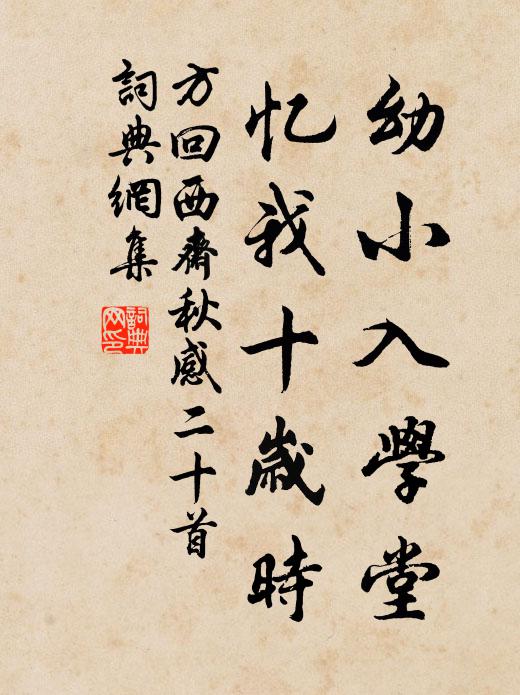 幼小入學堂
忆我十歲時
方回西齋秋感二十首
詞典網集
詞典網印